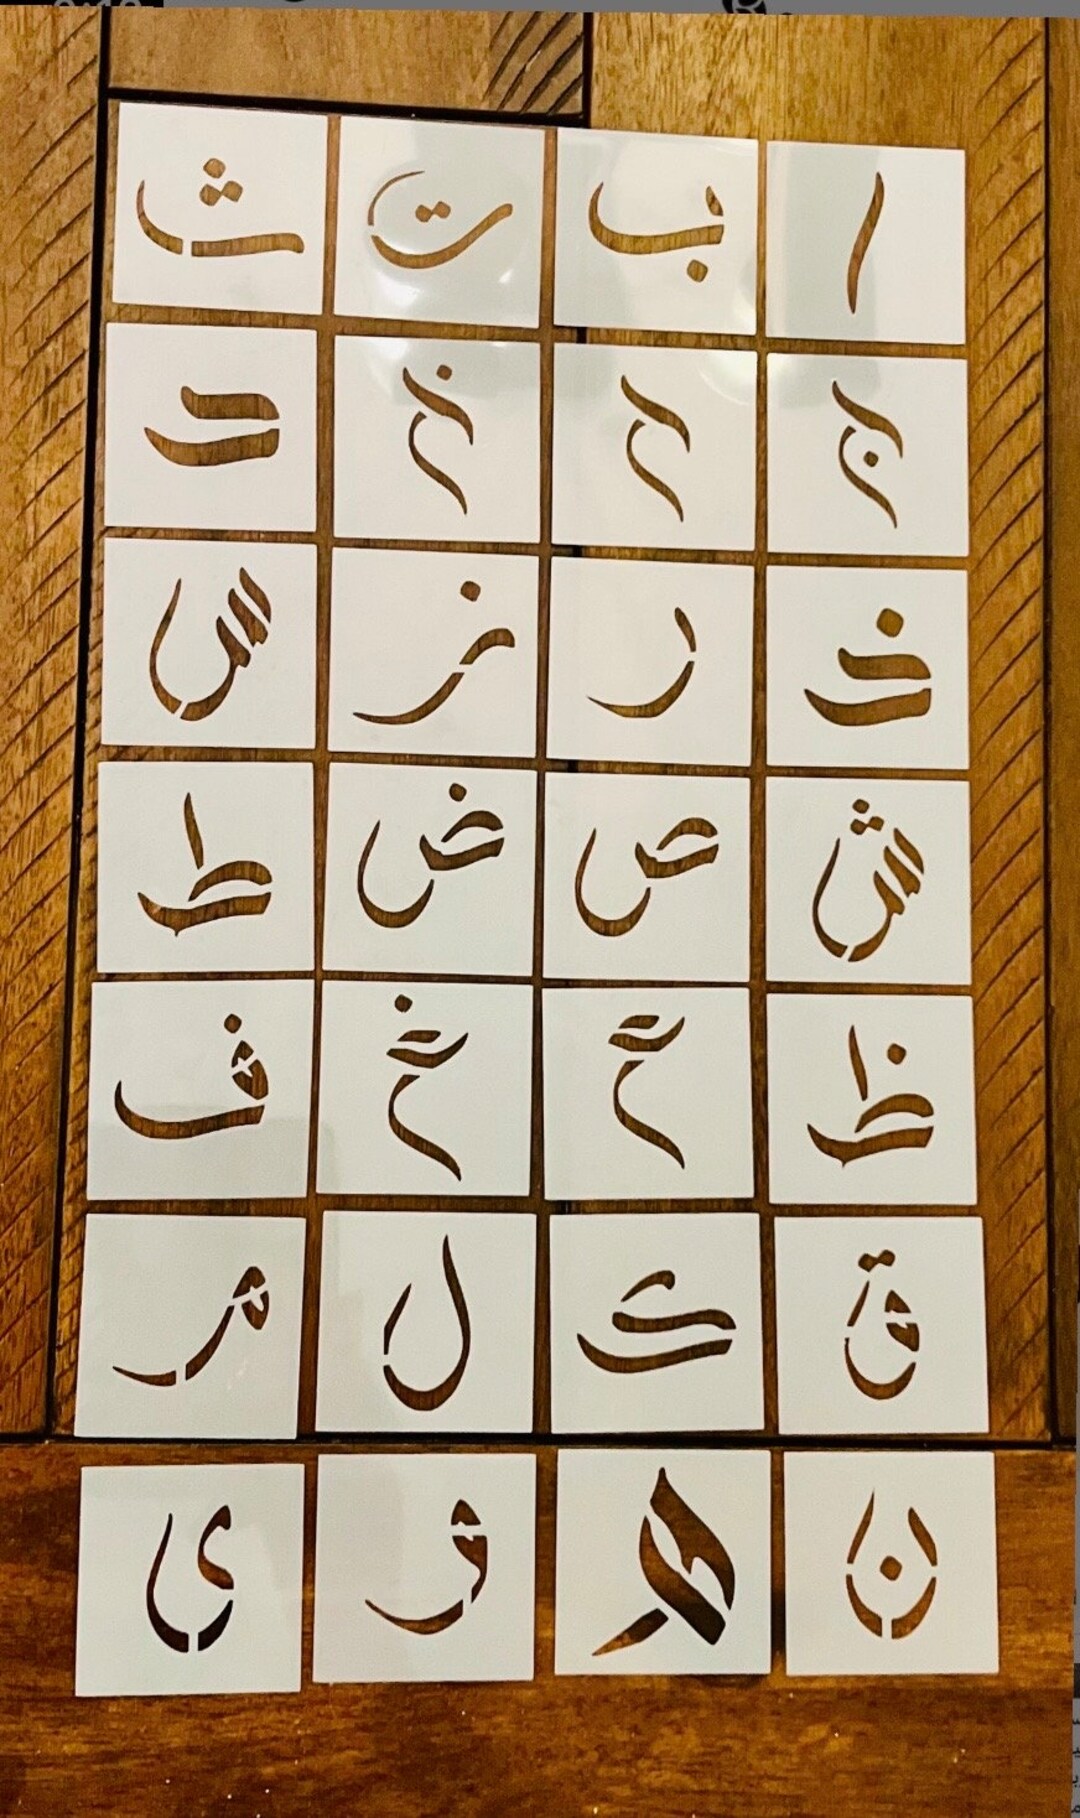 ا ب ت ث
ج ح خ د
ذ ر ز س
ش ص ض ط
ظ ع غ ف
ق ك ل م
ن ه و ي